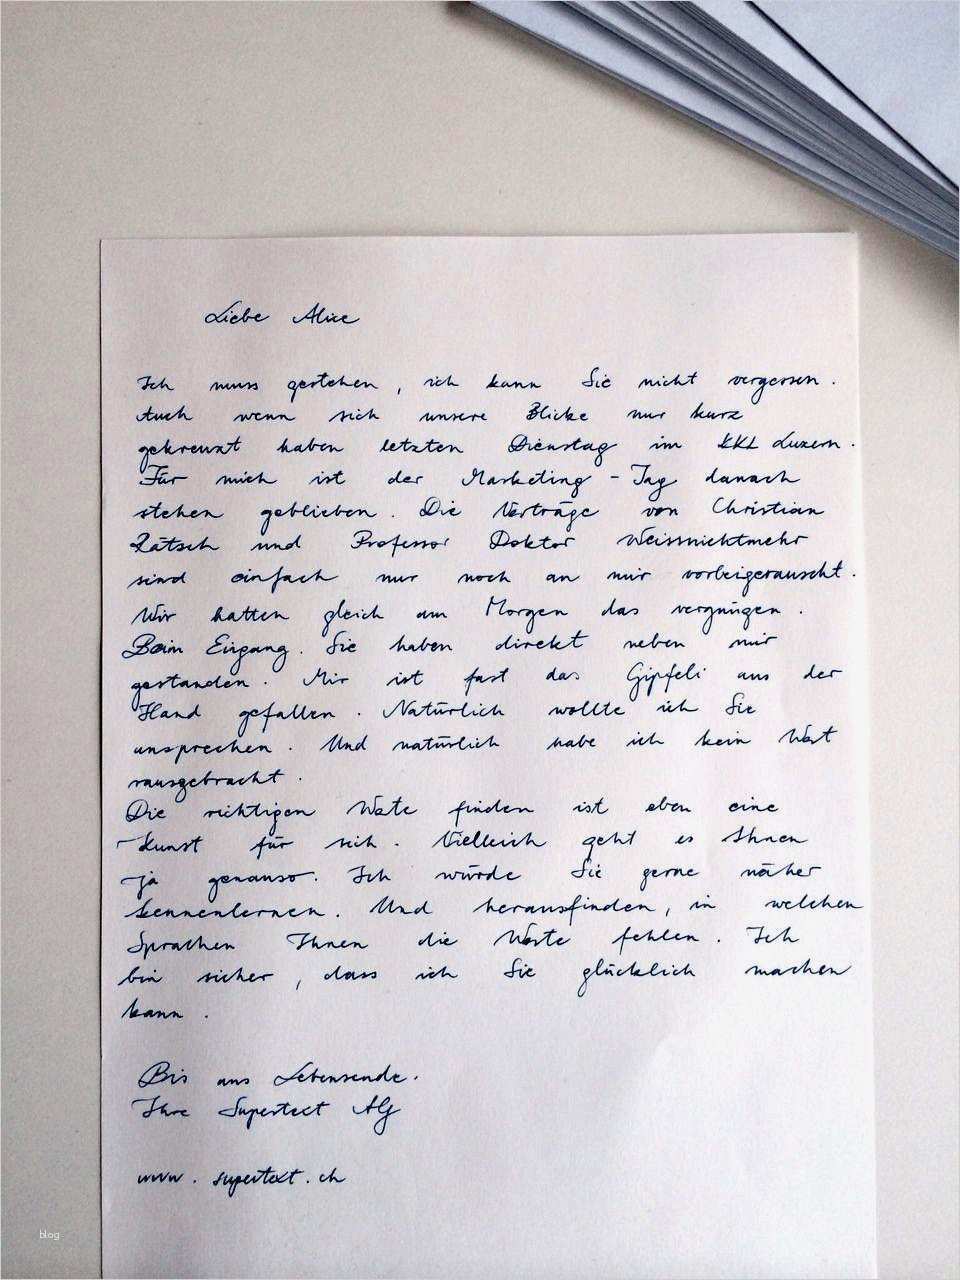 Liebe Alice
Ich muss gestehen, ich kann Sie nicht vergessen.
Auch wenn sich unsere Blicke nur kurz
gekreuzt haben letzten Dienstag im KKL Luzern.
Für mich ist der Marketing-Tag danach
stehen geblieben. Die Vorträge von Christian
Rätsch und Professor Doktor Weissnichtmehr
sind einfach nur noch an mir vorbeigerauscht.
Wir hatten gleich am Morgen das vergnügen.
Beim Eingang. Sie haben direkt neben mir
gestanden. Mir ist fast das Gipfeli aus der
Hand gefallen. Natürlich wollte ich Sie
ansprechen. Und natürlich habe ich kein Wort
rausgebracht.
Die richtigen Worte finden ist eben eine
Kunst für sich. Vielleich geht es Ihnen
ja genauso. Ich würde Sie gerne näher
kennenlernen. Und herausfinden, in welchen
Sprachen Ihnen die Worte fehlen. Ich
bin sicher, dass ich Sie glücklich machen
kann.
Bis ans Lebensende.
Ihre Supertext AG
www.supertext.ch
blog